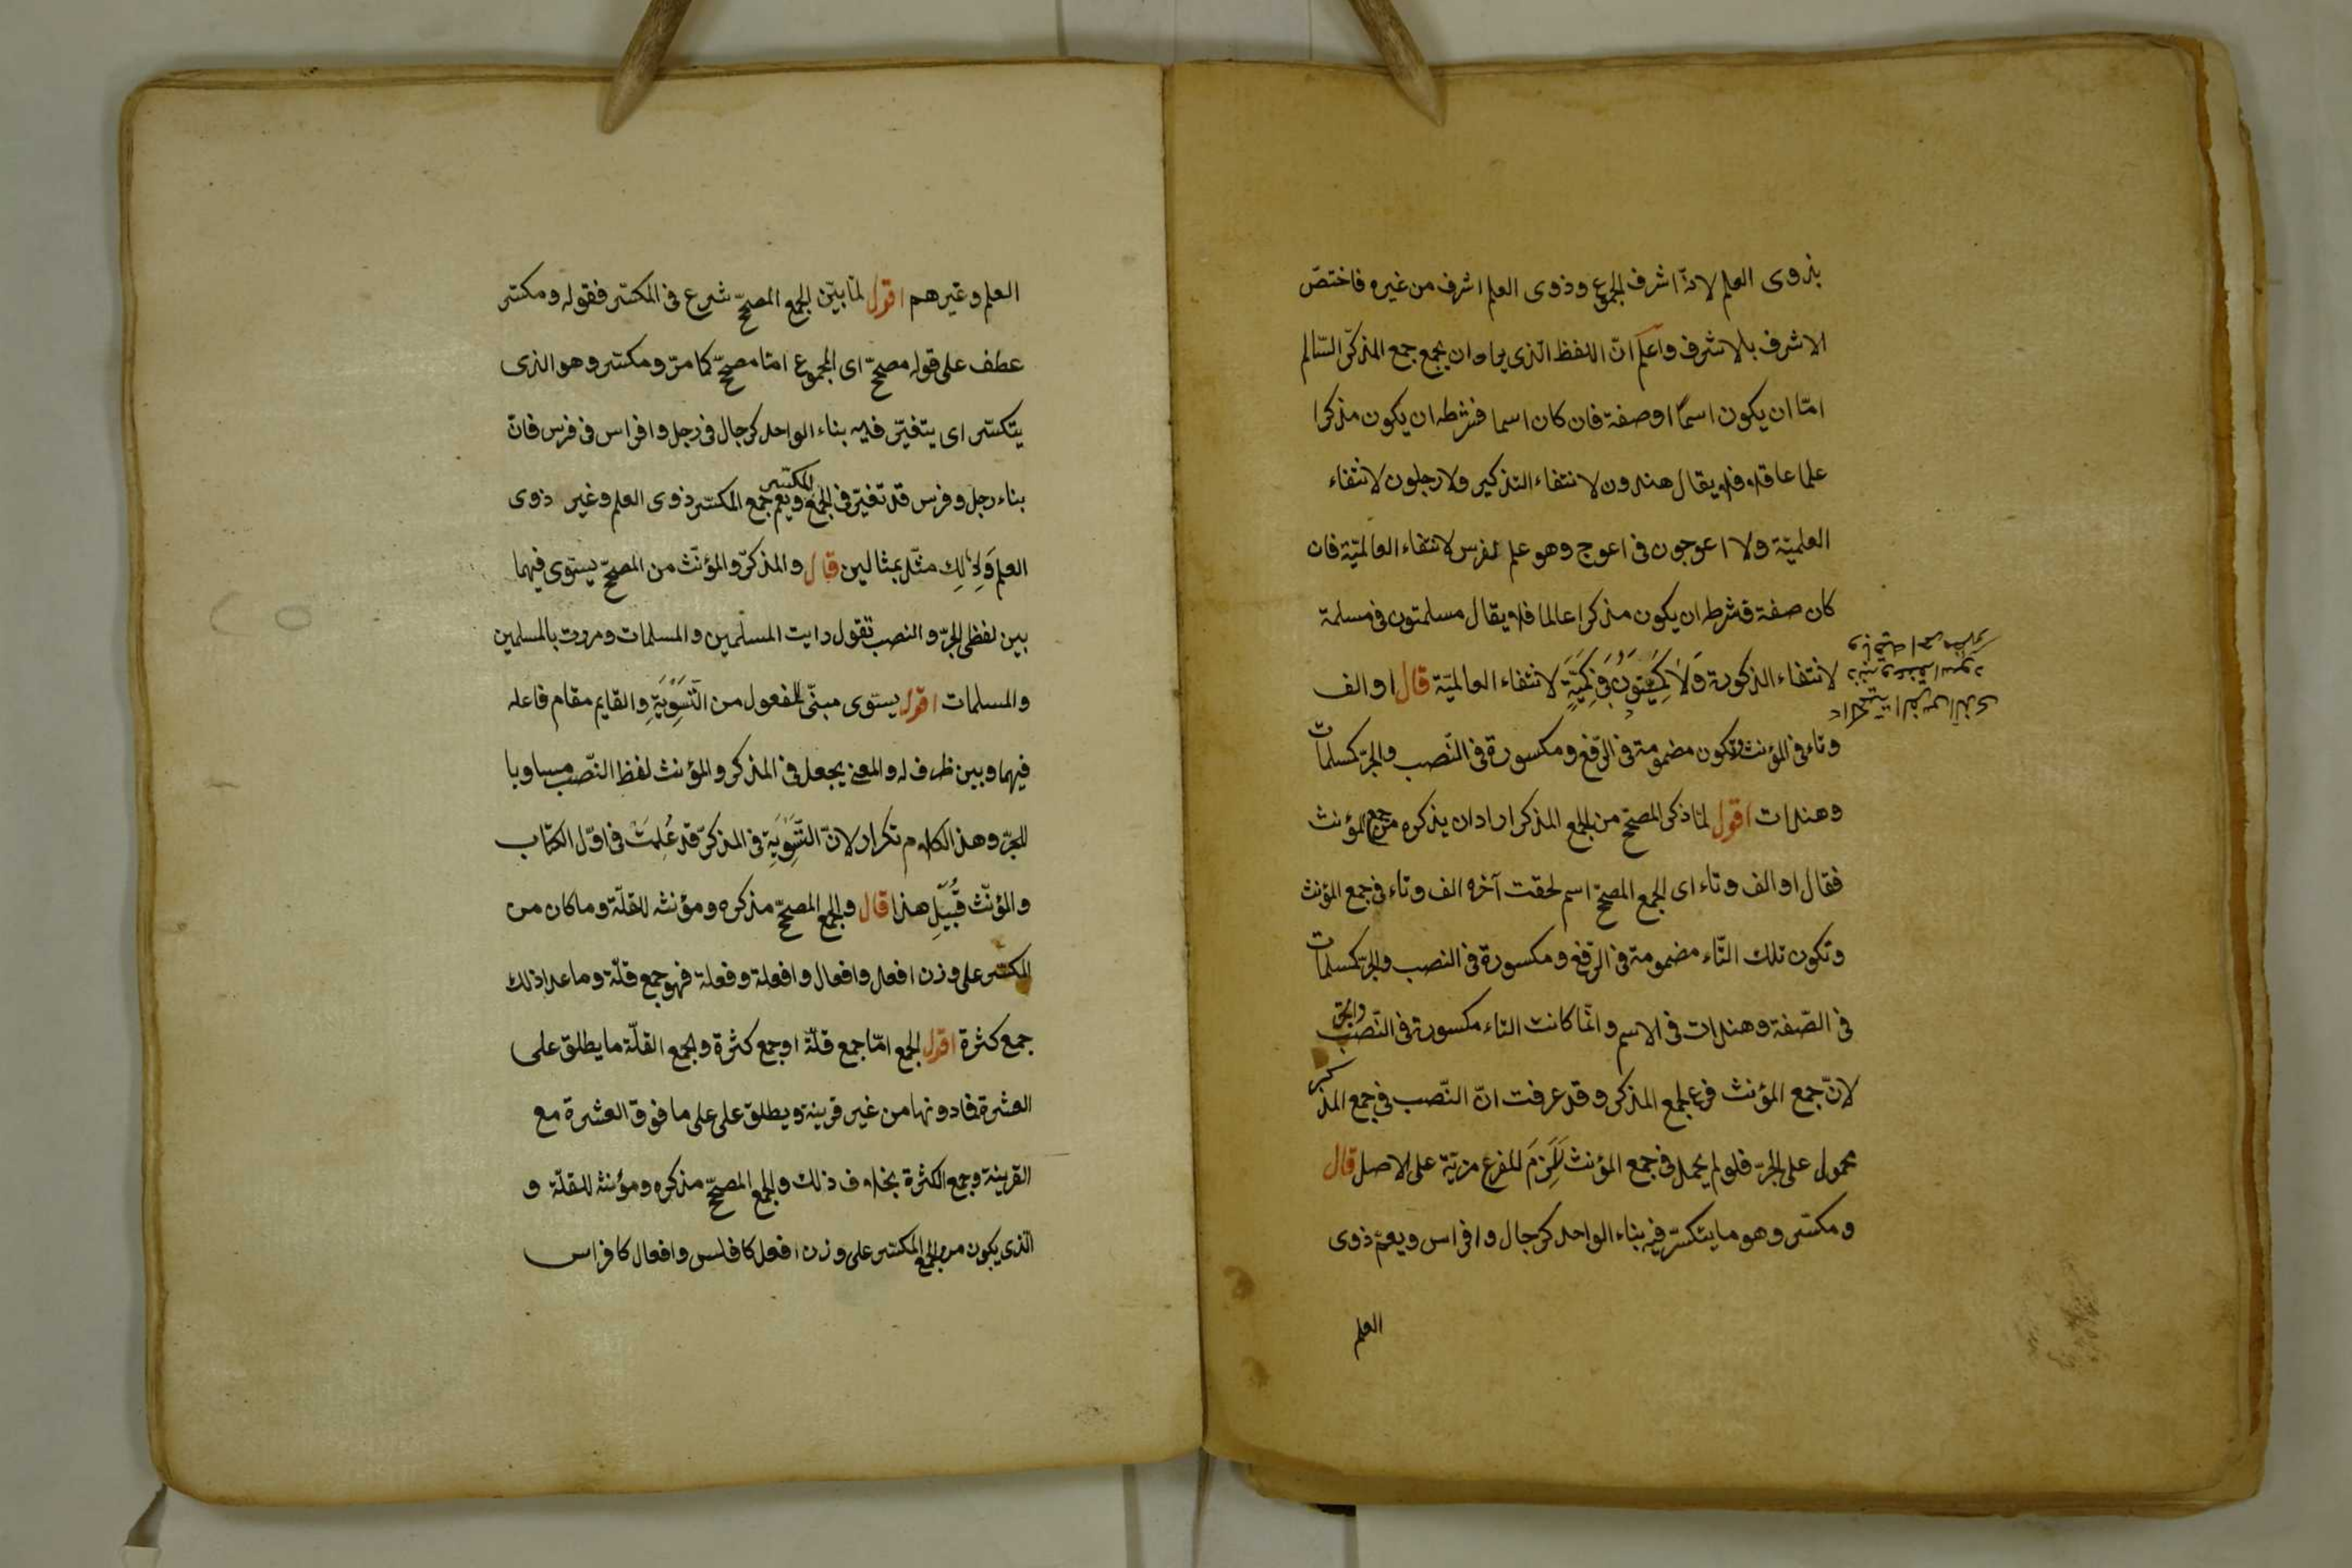 بذوى العلم لانّه اشرف الجموع وذوى العلم اشرف من غيره فاختصّ
الاشرف بالاشرف واعلم انّ اللفظ الّذى يراد ان يجمع جمع المذكّر السّالم
امّا ان يكون اسمًا او صفة فان كان اسما فشرطه ان يكون مذكرا
علما عاقلا فلا يقال هندون لانتفاء التذكير ولا رجلون لانتفاء
العلميّة ولا اعوجون فى اعوج وهو علم لفرس لانتفاء العالميّة فان
كان صفة فشرطه ان يكون مذكرا عالما فلا يقال مسلمتون فى مسلمة
لانتفاء الذكورة ولا كميتون فى كميت لانتفاء العالميّة قال او الف
وتاء فى المؤنث وتكون مضمومة فى الرّفع ومكسورة فى النّصب والجرّ كمسلمات
وهندات اقول لمّا ذكر المصحّح من الجمع المذكر اراد ان يذكره من جمع المؤنث
فقال او الف وتاء اى الجمع المصحّح اسم لحقت آخره الف وتاء فى جمع المؤنث
وتكون تلك التّاء مضمومة فى الرّفع ومكسورة فى النصب والجرّ كمسلمات
فى الصّفة وهندات فى الاسم وانّما كانت التاء مكسورة فى النّصب والجرّ
لانّ جمع المؤنث فرع لجمع المذكر وقد عرفت انّ النّصب فى جمع المذكر
محمول على الجرّ فلو لم يحمل فى جمع المؤنث لَلَزِمَ للفرع مزيّة على الاصل قال
ومكسّر وهو ما يتكسّر فيه بناء الواحد كرجال وافراس ويعمّ ذوى
العلم
العلم وغيرهم اقول لمّا بيّن الجمع المصحّح شرع فى المكسّر فقوله ومكسّر
عطف على قوله مصحّح اى المجموع امّا مصحّح كما مرّ ومكسّر وهو الذى
يتكسّر اى يتغيّر فيه بناء الواحد كرجال فى رجل وافراس فى فرس فانّ
بناء رجل وفرس قد تغيّر فى الجمع المكسّر ويعم جمع المكسّر ذوى العلم وغير ذوى
العلم وَلِذٰلِكَ مثّل بمثالين قال والمذكّر والمؤنّث من المصحّح يستوى فيهما
بين لفظى الجرّ والنصب تقول رايت المسلمين والمسلمات ومررت بالمسلمين
والمسلمات اقول يستوى مبنىّ للمفعول من التَّسْوِيَةِ والقايم مقام فاعله
فيهما وبين ظرف له والمعنى يجعل فى المذكر والمؤنث لفظ النّصب مساويا
للجرّ وهذا الكلام تكرار لانّ التَّسْوِيَةِ فى المذكّر قد عُلِمَتْ فى اوّل الكتاب
والمؤنّث قُبَيْلِ هذا قال والجمع المصحّح مذكره ومؤنثه للقلّة وما كان من
المكسّر على وزن افعل وافعال وافعلة وفعلة فهو جمع قلّة وما عدا ذلك
جمع كثرة اقول الجمع امّا جمع قلّة او جمع كثرة وجمع القلّة ما يطلق على
العشرة فما دونها من غير قرينة ويطلق على على ما فوق العشرة مع
القرينة وجمع الكثرة بخلاف ذلك والجمع المصحّح مذكره ومؤنثه للقلّة و
الّذى يكون من الجمع المكسّر على وزن افعل كافلس وافعال كافراس